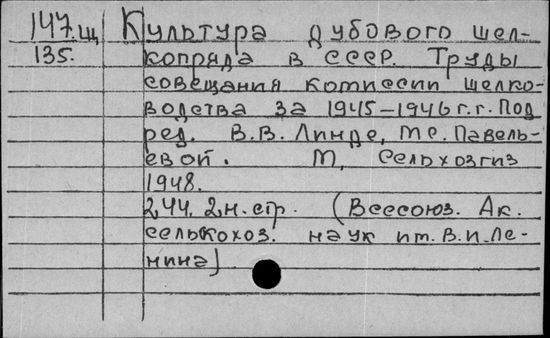 147.щ Культура дубового шел-
135. копряда в СССР. Труды
совещания комиссии шелко-
водства за 1945–1946 г.г. Под
ред. В.В. Линде, М.С. Павель-
евой. М, Сельхозгиз
1948.
244. 2н. стр. (Всесоюз. Ак.
сельскохоз. наук им. В.И. Ле-
нина)